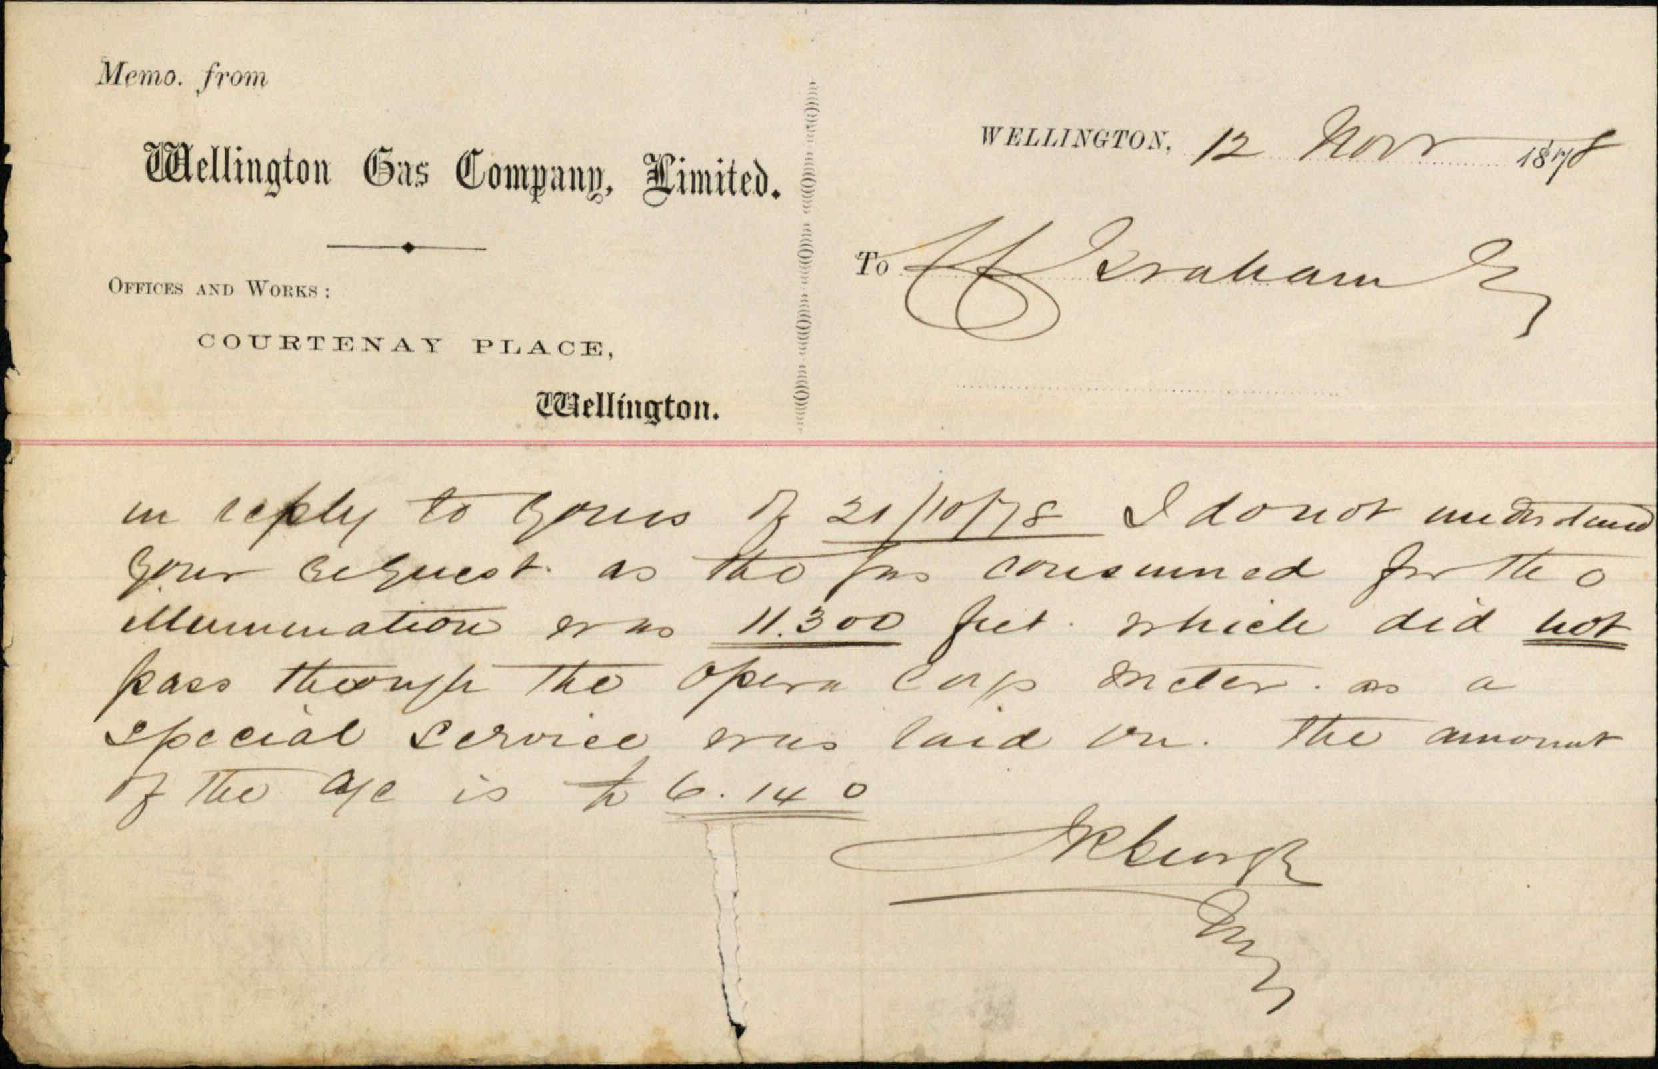 Memo. from
Wellington Gas Company, Limited.
OFFICES AND WORKS:
COURTENAY PLACE,
Wellington.
WELLINGTON, 12 Novr 1878
To Graham
in reply to yours of 21/10/78 I do not understand
your request. as the gas consumed for the
illumination was 11.300 feet. which did not
pass through the opera meter. as a
special service was laid on. the amount
of the a/c is £ 6.14 0